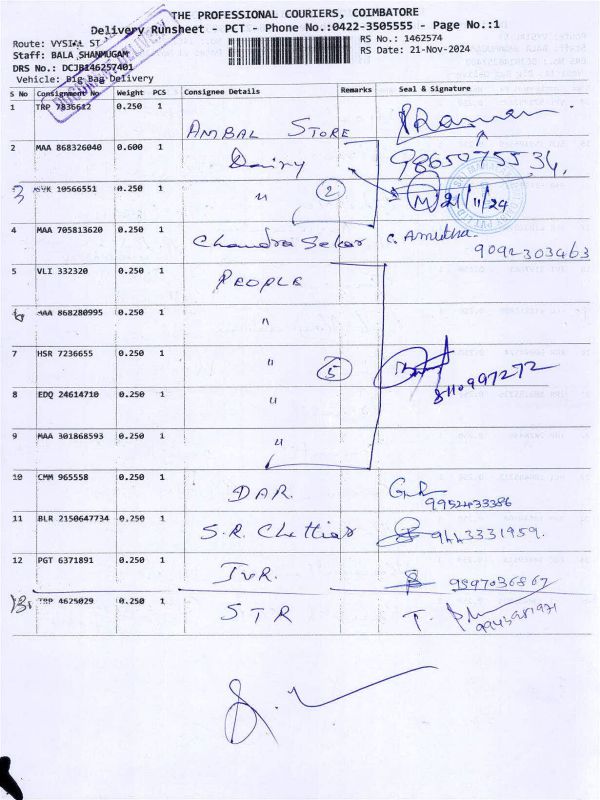 THE PROFESSIONAL COURIERS, COIMBATORE
Delivery Runsheet - PCT - Phone No.:0422-3505555 - Page No.:1
Route: VYSIAL ST
RS No.: 1462574
Staff: BALA SHANMUGAM
RS Date: 21-Nov-2024
DRS No.: DCJB146257401
Vehicle: Big Bag Delivery
S No Consignment No Weight PCS Consignee Details Remarks Seal & Signature
1 TRP 7836612 0.250 1 AMBAL STORE P Raman
2 MAA 868326040 0.600 1 Dairy 9865075534,
3 10566551 0.250 1 " 2 M 21/11/24
4 MAA 705813620 0.250 1 Chandra Sekar C. Amutha. 9092303463
5 VLI 332320 0.250 1 PEOPLE
6 MAA 868280995 0.250 1 "
7 HSR 7236655 0.250 1 " 5 8110997272
8 EDQ 24614710 0.250 1 "
9 MAA 301868593 0.250 1 "
10 CMM 965558 0.250 1 DAR. 9952433386
11 BLR 2150647734 0.250 1 S.R. Chettiar 9443331959.
12 PGT 6371891 0.250 1 JVR. 9597036867
13 TRP 4625029 0.250 1 STR T.